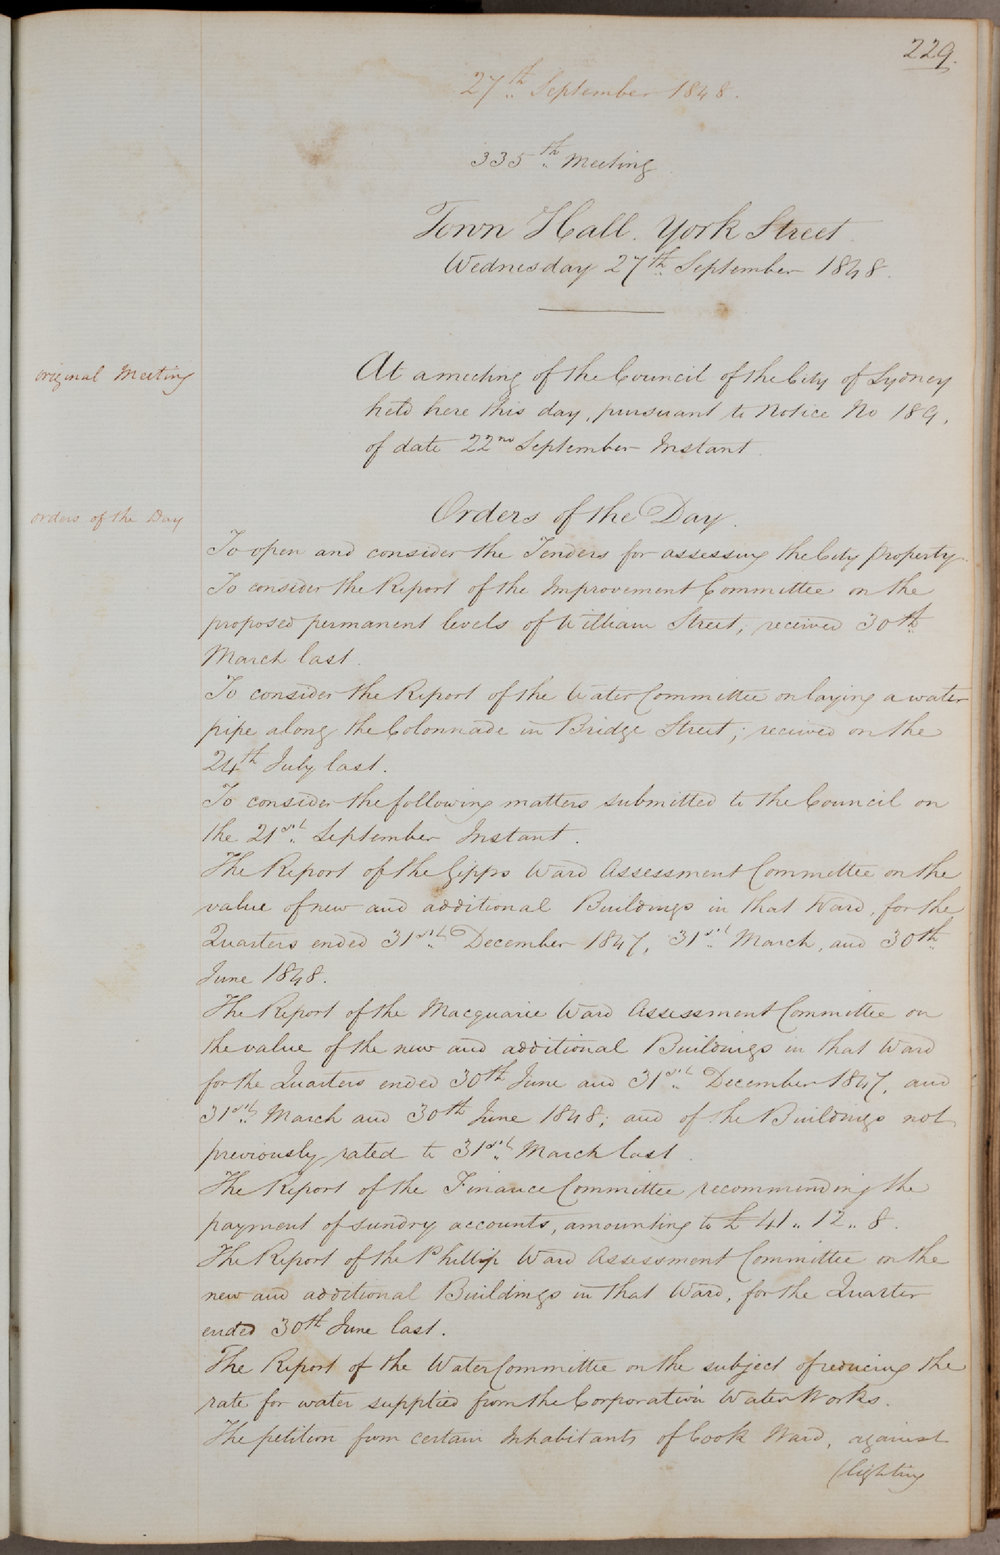 229.
27th September 1848.
335th Meeting
Town Hall. York Street.
Wednesday 27th September 1848.
original Meeting
At a meeting of the Council of the City of Sydney
held here this day, pursuant to Notice No 189,
of date 22nd September Instant.
orders of the Day
Orders of the Day.
To open and consider the Tenders for assessing the City Property.
To consider the Report of the Improvement Committee on the
proposed permanent levels of William Street, received 30th
March last.
To consider the Report of the Water Committee on laying a water
pipe along the Colonnade in Bridge Street; received on the
24th July last.
To consider the following matters submitted to the Council on
the 21st September Instant.
The Report of the Gipps Ward Assessment Committee on the
value of new and additional Buildings in that Ward, for the
Quarters ended 31st December 1847, 31st March, and 30th
June 1848.
The Report of the Macquarie Ward Assessment Committee on
the value of the new and additional Buildings in that Ward
for the Quarters ended 30th June and 31st December 1847, and
31st March and 30th June 1848; and of the Buildings not
previously rated to 31st March last.
The Report of the Finance Committee recommending the
payment of sundry accounts, amounting to £41.. 12.. 8.
The Report of the Phillip Ward Assessment Committee on the
new and additional Buildings in that Ward, for the Quarter
ended 30th June last.
The Report of the Water Committee on the subject of reducing the
rate for water supplied from the Corporation Water Works.
The petition from certain Inhabitants of Cook Ward, against
(lighting